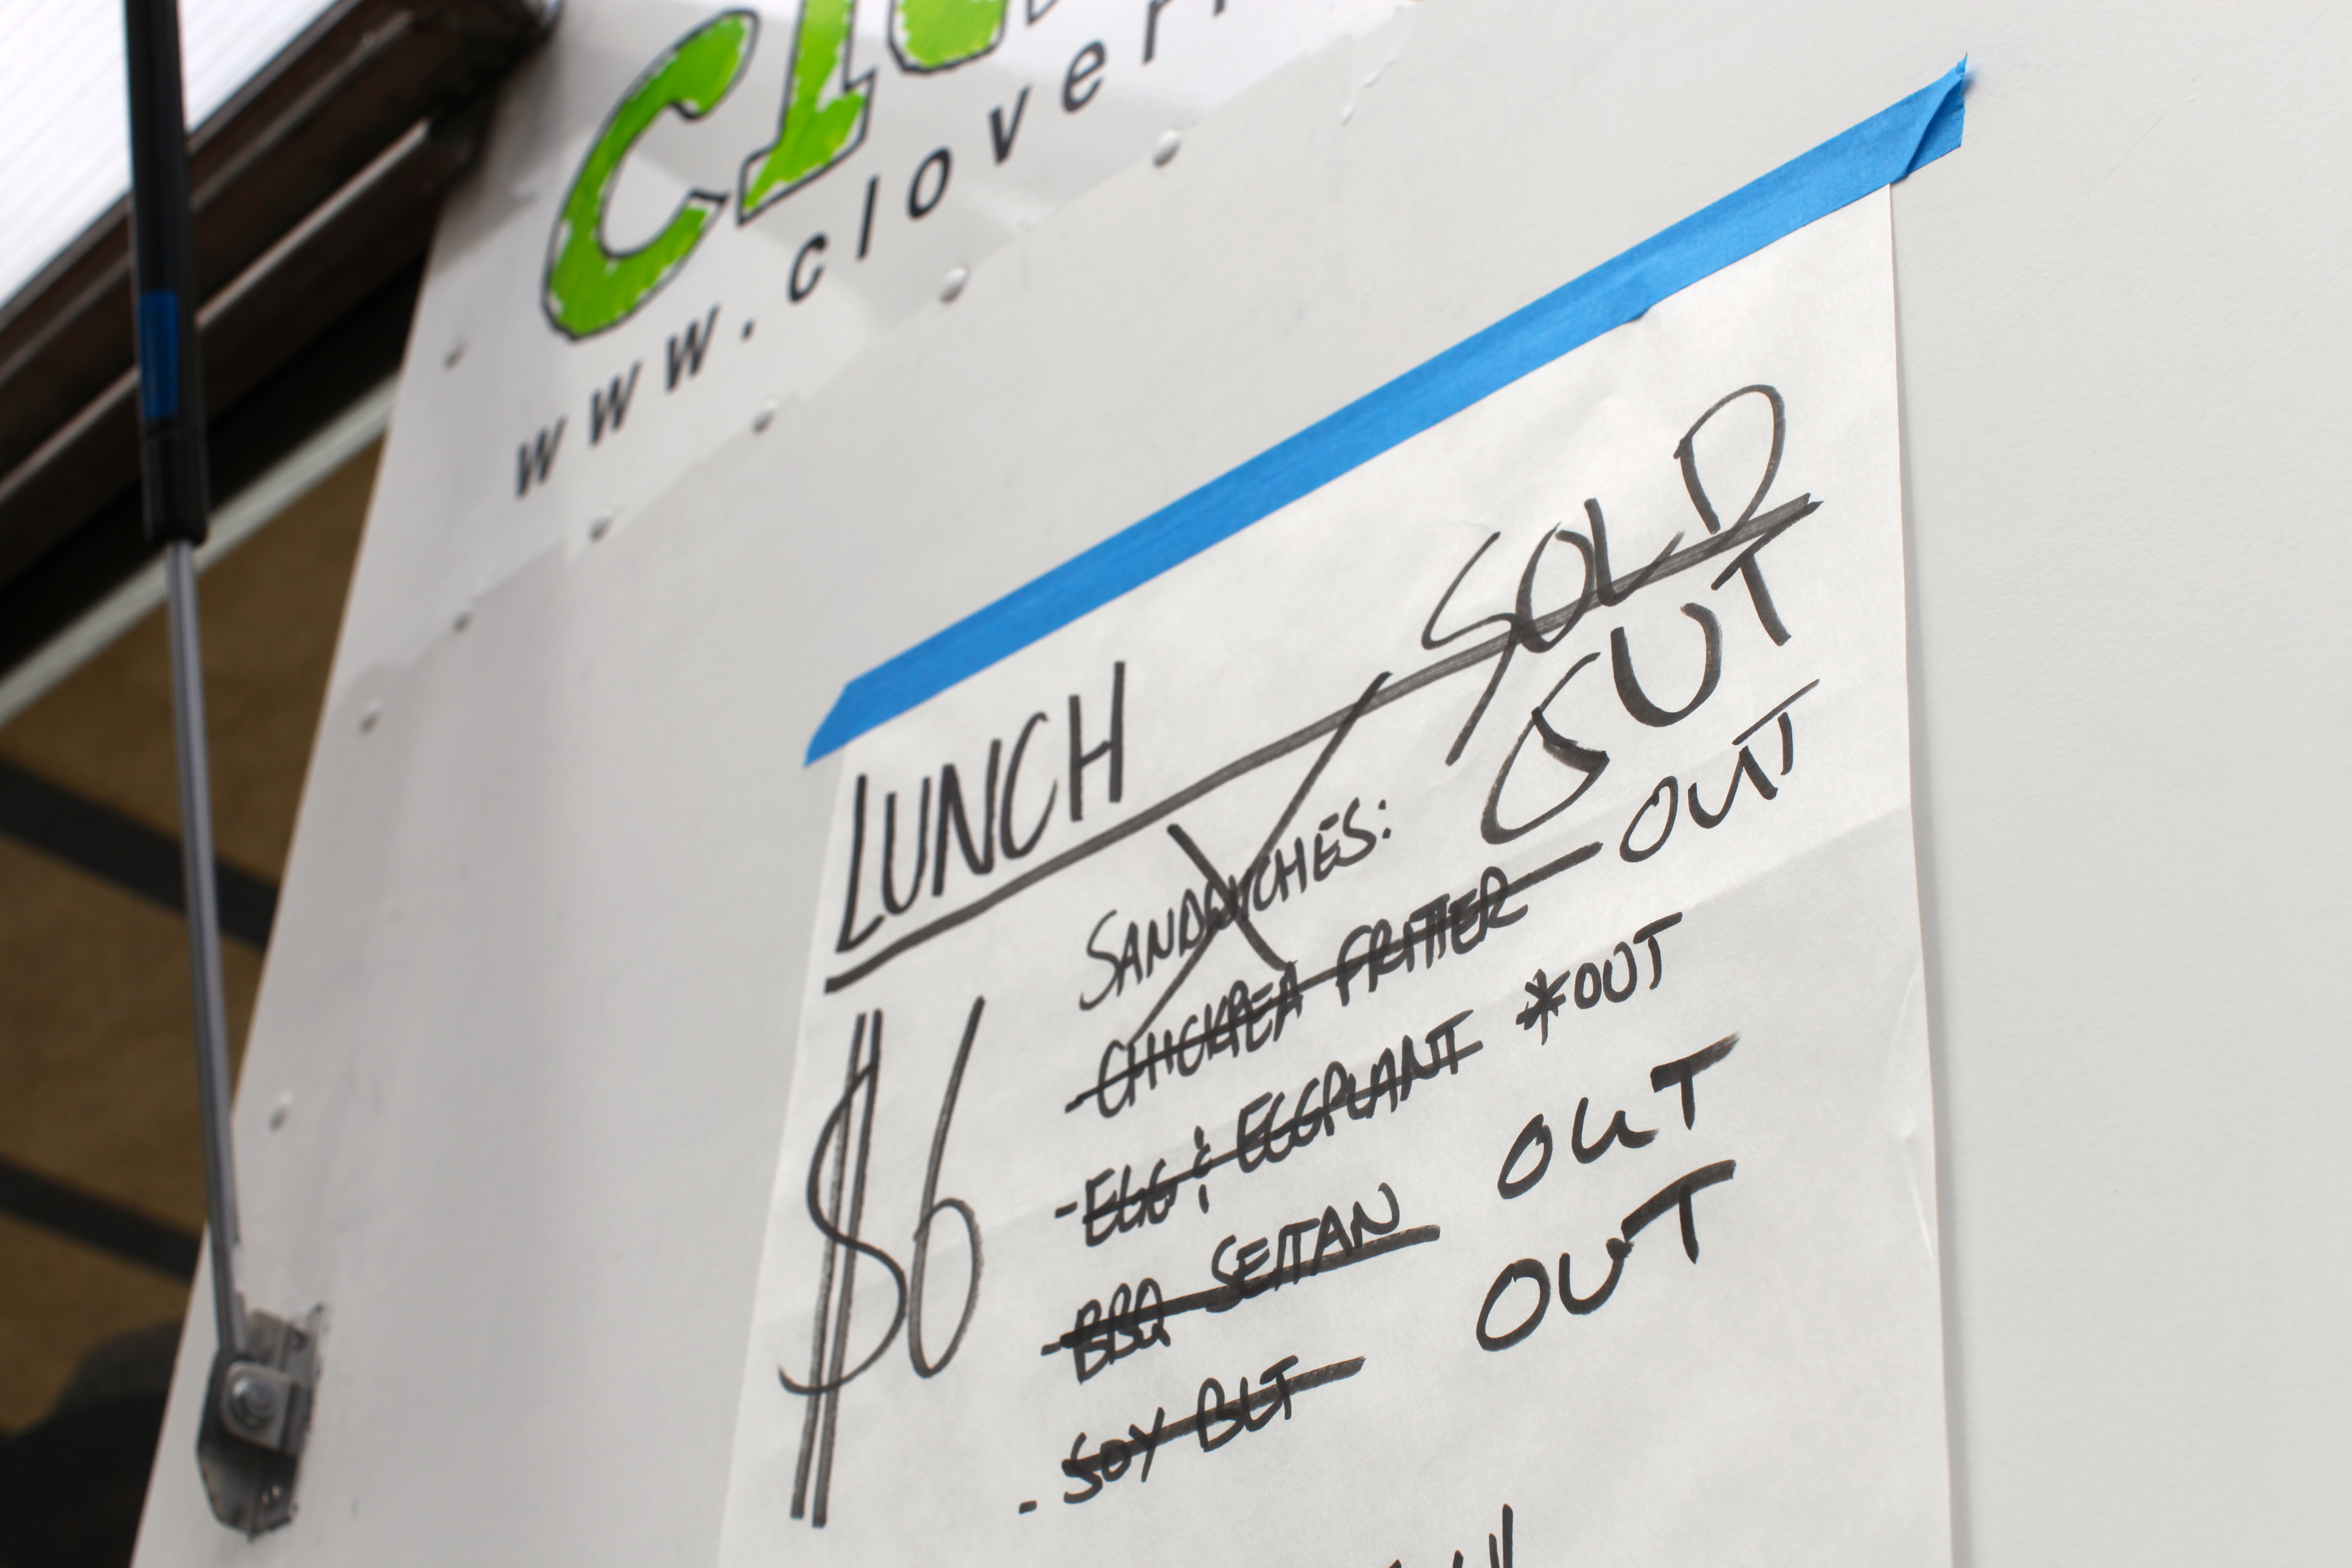 www.clover
LUNCH
SOLD
OUT
SANDWICHES:
$6
- CHICKPEA FRITTER OUT
- EGG & EGGPLANT *OUT
- BBQ SEITAN OUT
- SOY BLT OUT